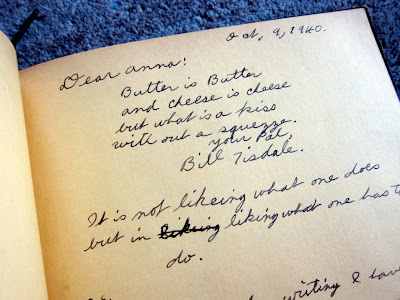 Oct, 9, 1940.
Dear Anna!
Butter is Butter
and cheese is cheese
but what is a kiss
with out a squezze.
your Pal,
Bill Tisdale.
It is not likeing what one does
but in liking what one has to
do.
writing I have